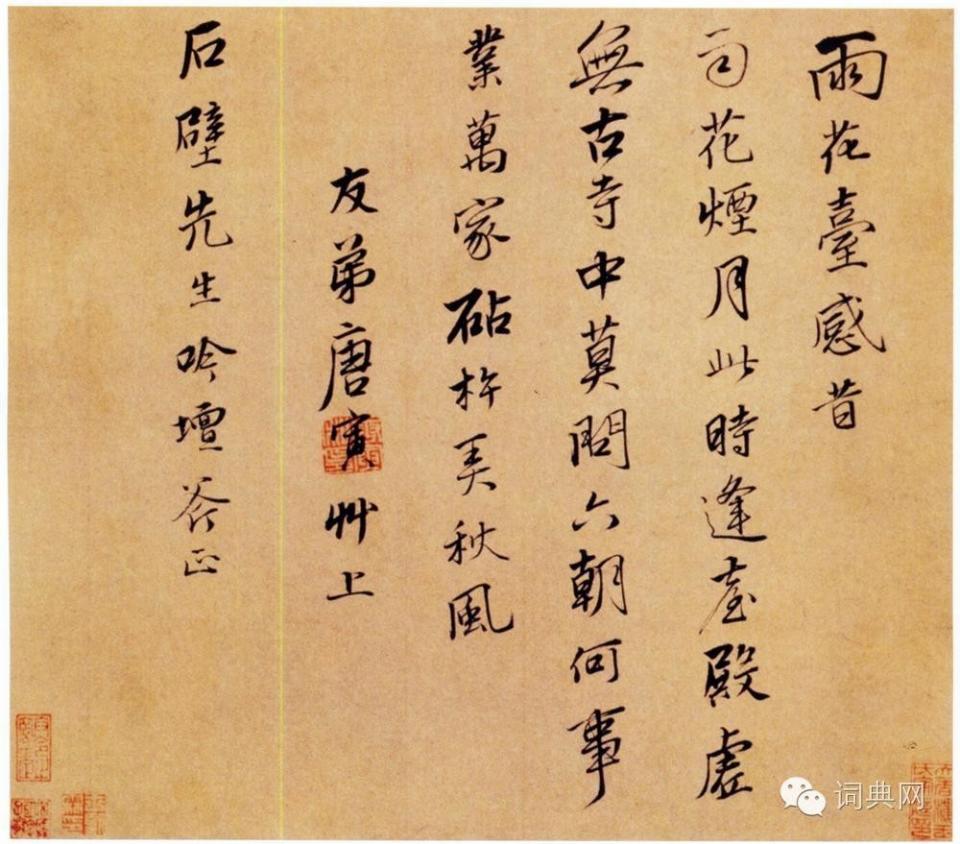 雨花臺感昔
雨花煙月此時逢臺殿虛
無古寺中莫問六朝何事
業萬家砧杵弄秋風
友弟唐寅艸上
石壁先生吟壇斧正
词典网